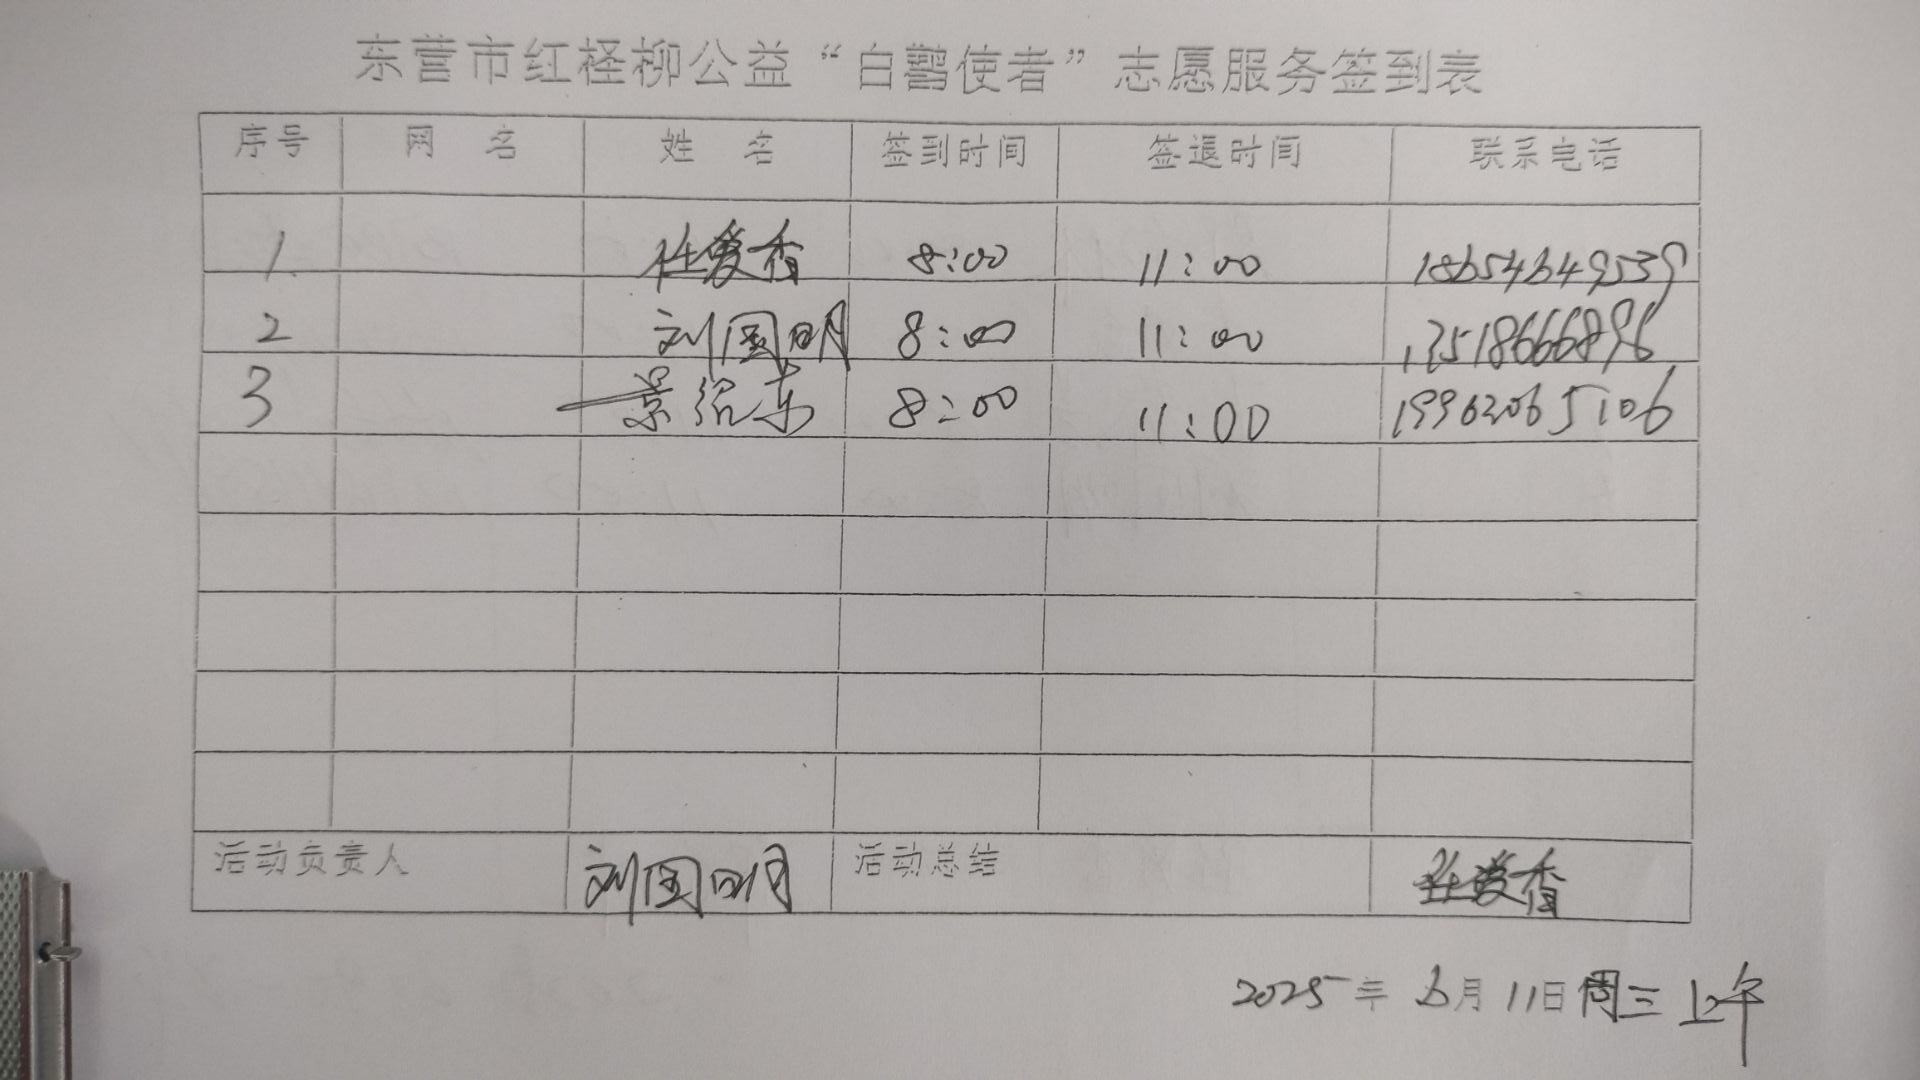 东营市红柽柳公益“白鹳使者”志愿服务签到表
序号 网名 姓名 签到时间 签退时间 联系电话
1. 杜爱香 8:00 11:00 18654649539
2 刘国明 8:00 11:00 13518666896
3 景绍东 8:00 11:00 19962065106
活动负责人 刘国明 活动总结 杜爱香
2025年6月11日周三上午